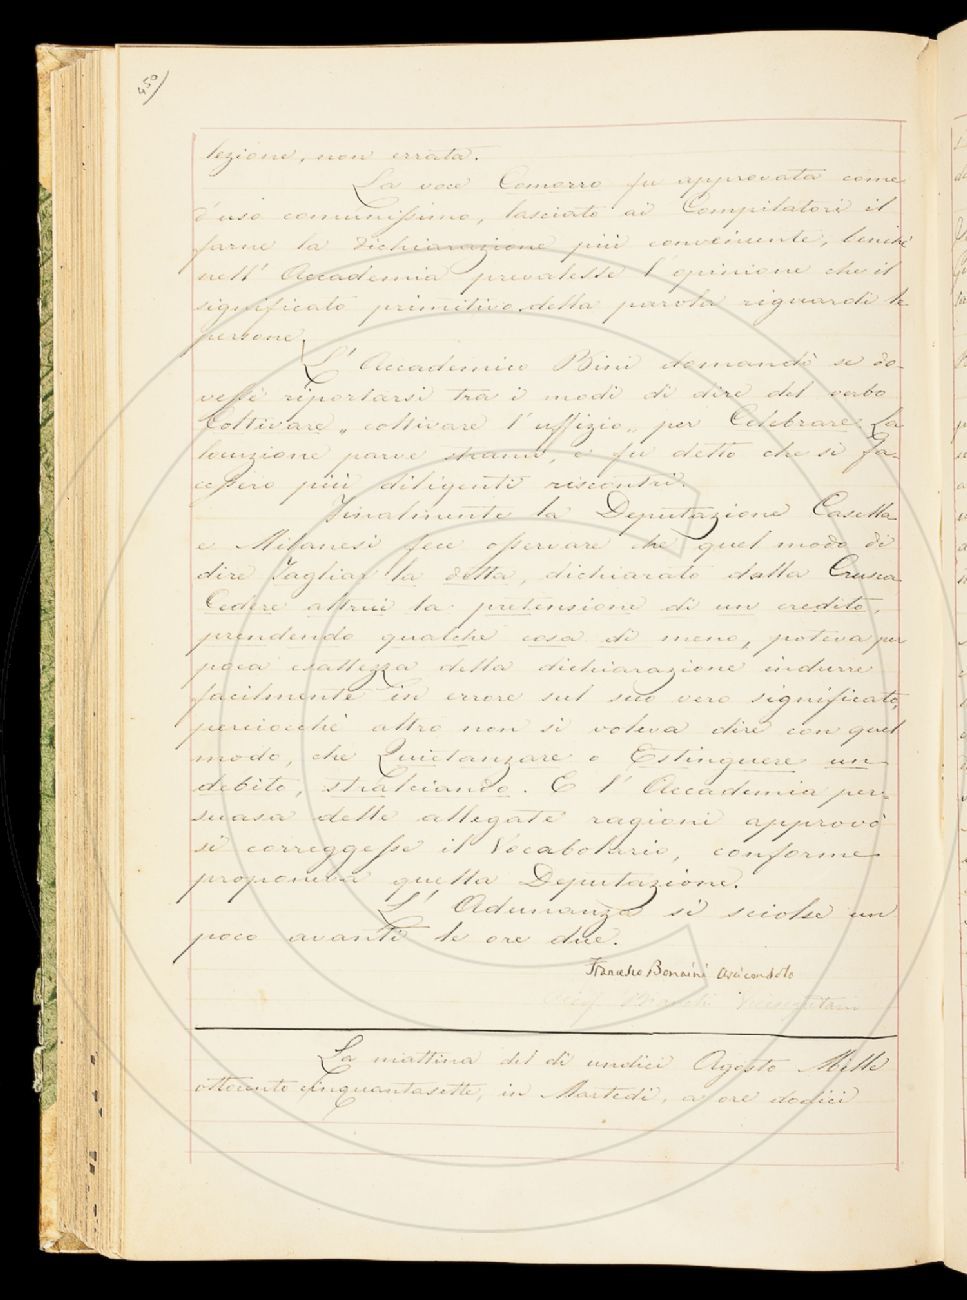 450
lezione, non errata.
La voce Comorro fu approvata come
d'uso comunissimo, lasciato ai Compilatori il
farne la dichiarazione più conveniente, benché
nell' Accademia prevalesse l'opinione che il
significato primitivo della parola riguardi le
persone.
L' Accademico Bini domandò se do-
vesse riportarsi tra i modi di dire del verbo
Coltivare „ coltivare l'uffizio „ per Celebrare. La
locuzione parve strana, e fu detto che si fa-
cessero più diligenti riscontri.
Finalmente la Deputazione Casella
e Milanesi fece osservare che quel modo di
dire Tagliar la detta, dichiarato dalla Crusca
Cedere altrui la pretensione di un credito,
prendendo qualche cosa di meno, poteva per
poca esattezza della dichiarazione indurre
facilmente in errore sul suo vero significato,
perciocchè altro non si voleva dire con quel
modo, che Quietanzare o Estinguere un
debito, stralciando. E l' Accademia per-
suasa delle allegate ragioni approvò
si correggesse il Vocabolario, conforme
proponeva quella Deputazione.
L' Adunanza si sciolse un
poco avanti le ore due.
Francesco Bonaini Arciconsolo
Bianchi Vicesegretario
La mattina del dì undici Agosto Mille
ottocento cinquantasette, in Martedì, a ore dodici